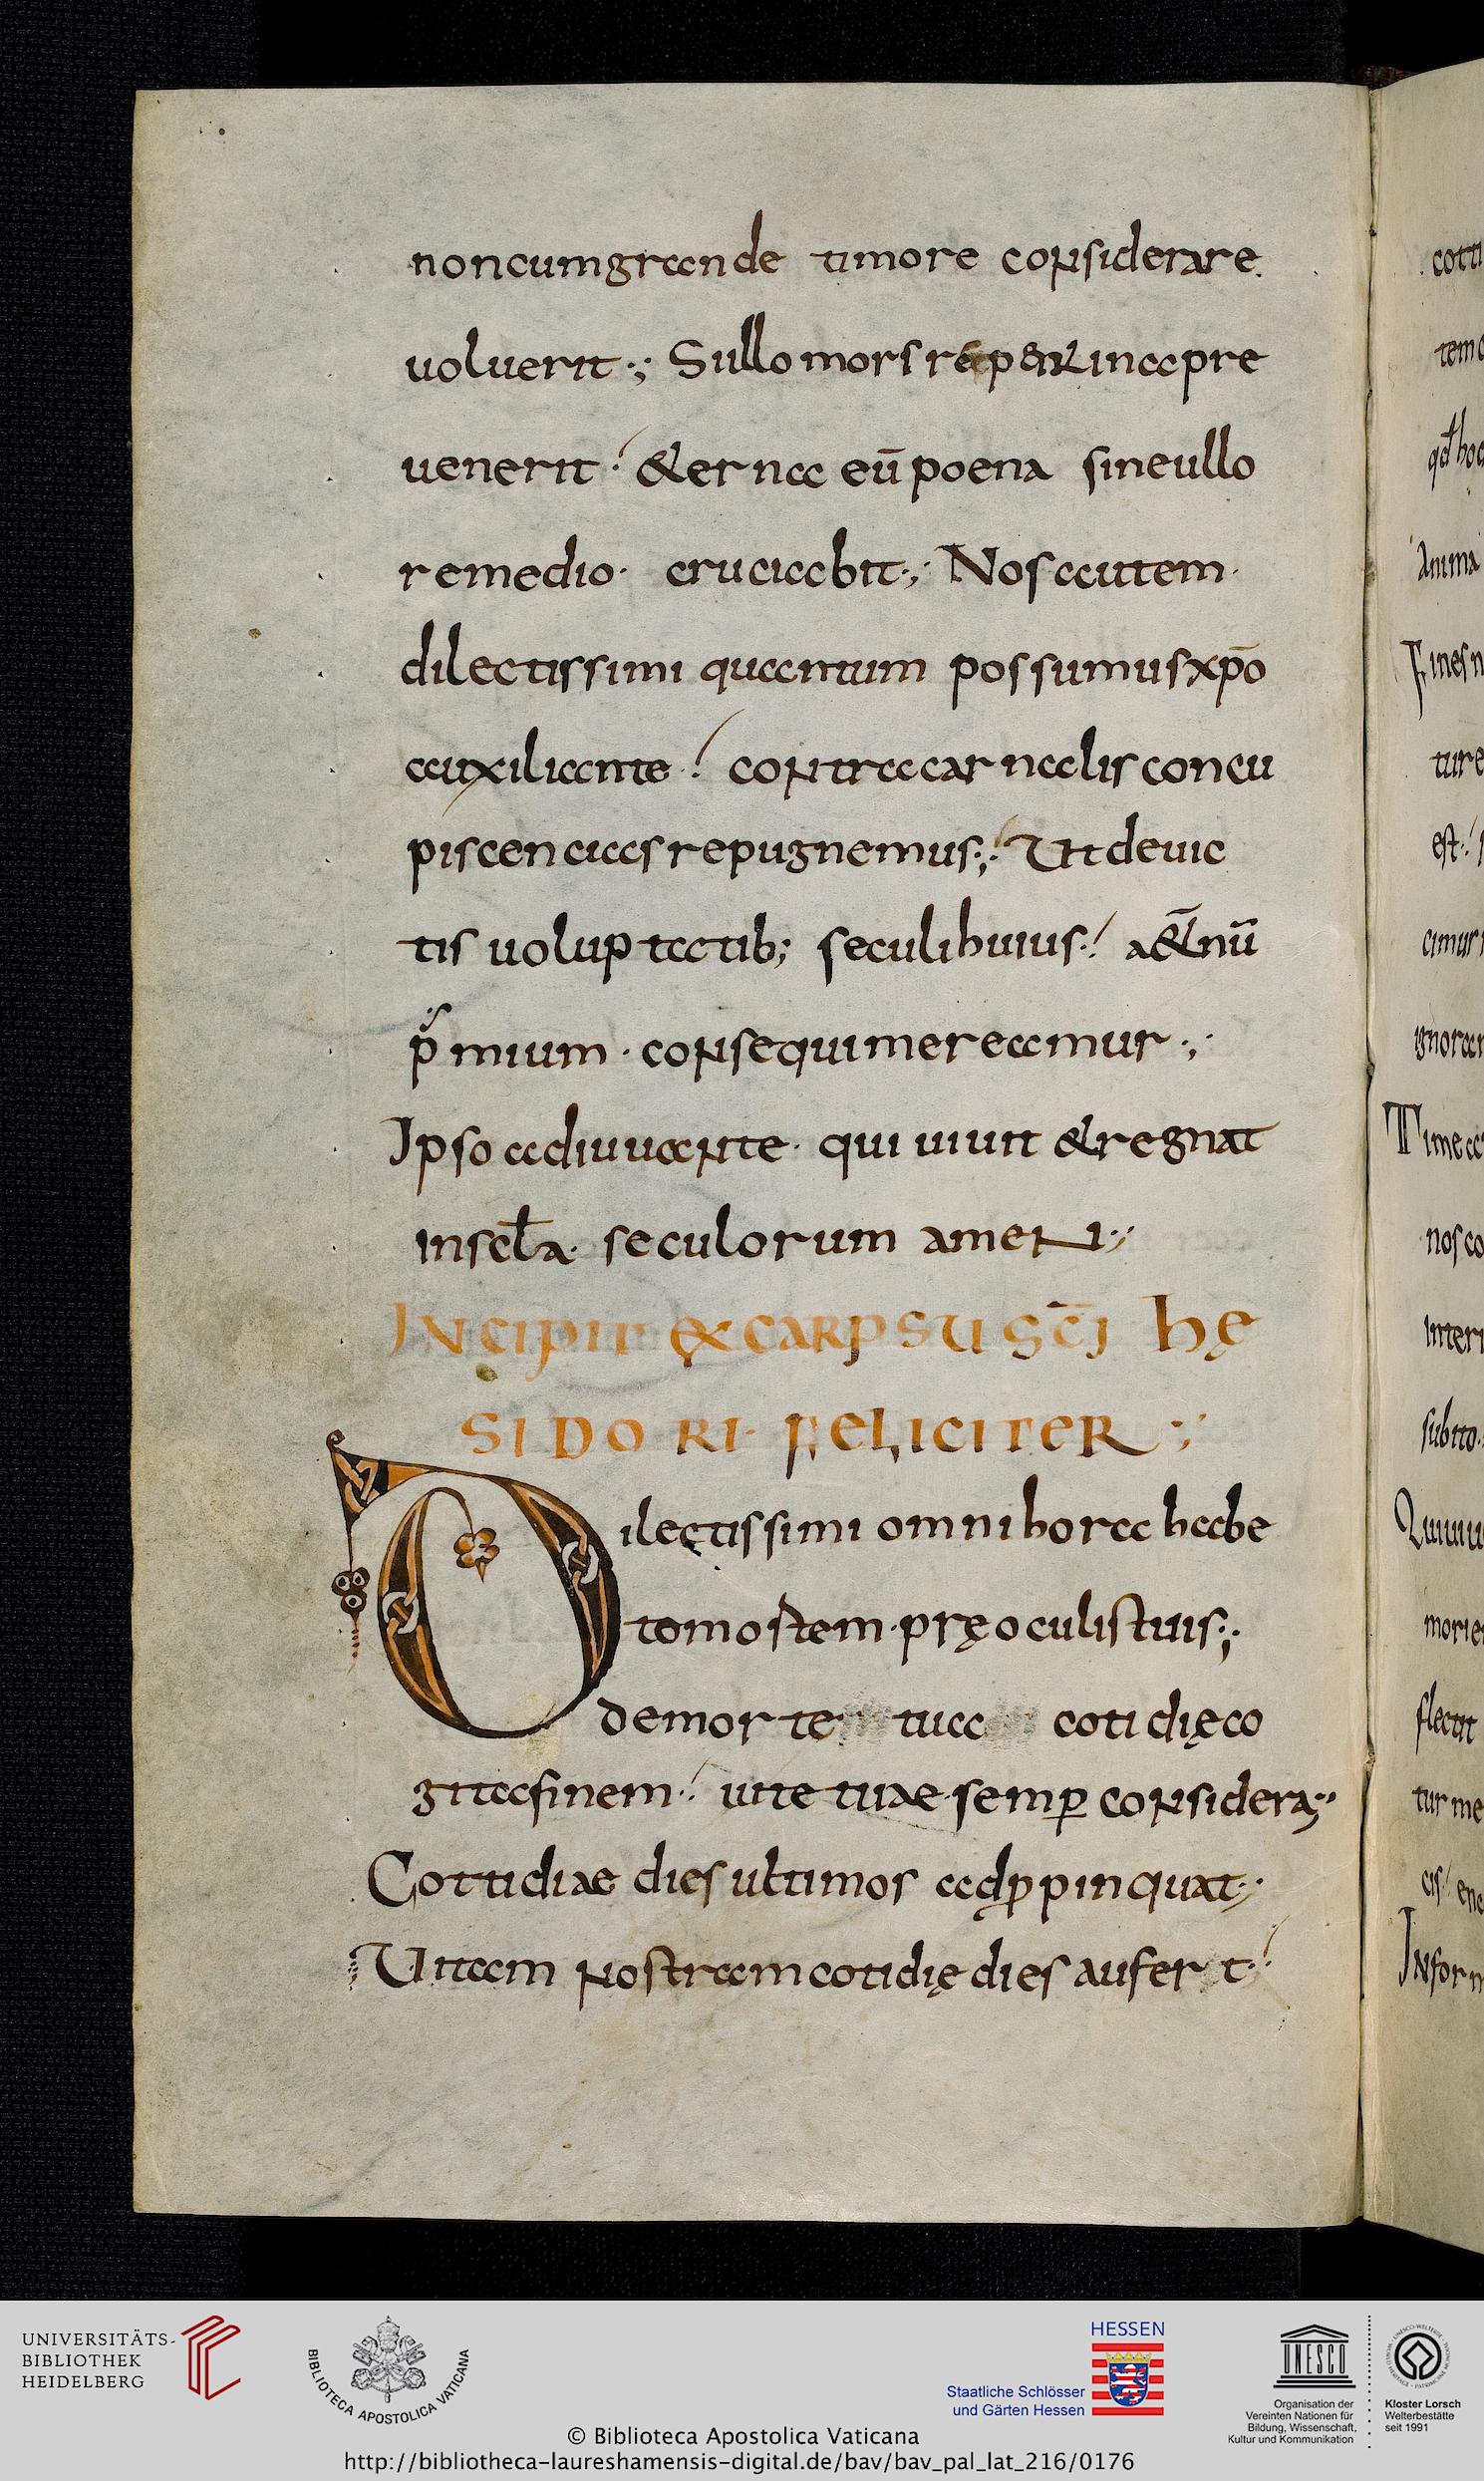 noncumgrande timore considerare.
uoluerit·; Sullo mors repentina pre
uenerit·/ &erna eū poena sineullo
remedio· cruciabit·,· Nos autem·
dilectissimi quantum possumus xp̄o
auxiliante·/ contra carnalis concu
piscencias repugnemus·,· Ut deuic
tis uoluptatib; seculi huius·/ a&̄nū
p̄mium· consequi mereamur·,·
Ipso adiuuante· qui uiuit &regnat
insec̄la· seculorum amen·,·
INCIPIT EXCARPSU SC̄I HĘ
SIDORI· FELICITER·,·
Dilectissimi omni hora habe
to mortem· pręoculis tuis·,·
de morte tua cotidię co
gita finem·/ uite tuae· semꝑ considera·,·
Cottidiae dies ultimos adꝓpinquat·,·
Uitam nostram cotidię dies aufert·/
cotti
tem
qđ hoc
Anima
Fines n
ture
est·/
cimus
ignoran
Time
nos co
interi
subito·
Quiui
morie
flectit
tur me
cis/ enc
Inforn
UNIVERSITÄTS-
BIBLIOTHEK
HEIDELBERG
BIBLIOTECA APOSTOLICA VATICANA
HESSEN
Staatliche Schlösser
und Gärten Hessen
UNESCO
Organisation der
Vereinten Nationen für
Bildung, Wissenschaft,
Kultur und Kommunikation
Kloster Lorsch
Welterbestätte
seit 1991
© Biblioteca Apostolica Vaticana
http://bibliotheca-laureshamensis-digital.de/bav/bav_pal_lat_216/0176